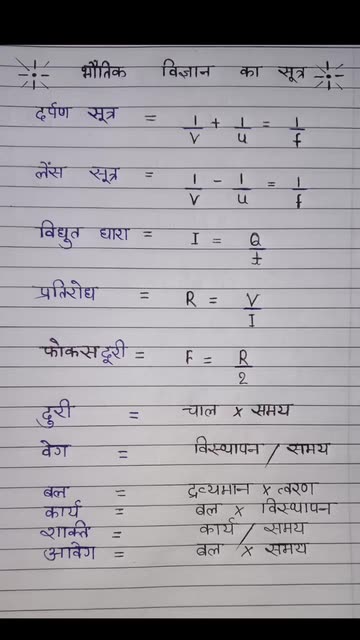 भौतिक विज्ञान का सूत्र
दर्पण सूत्र = 1/v + 1/u = 1/f
लेंस सूत्र = 1/v - 1/u = 1/f
विधुत धारा = I = Q/t
प्रतिरोध = R = V/I
फोकस दूरी = F = R/2
दुरी = चाल × समय
वेग = विस्थापन / समय
बल = द्रव्यमान × त्वरण
कार्य = बल × विस्थापन
शक्ति = कार्य / समय
आवेग = बल × समय